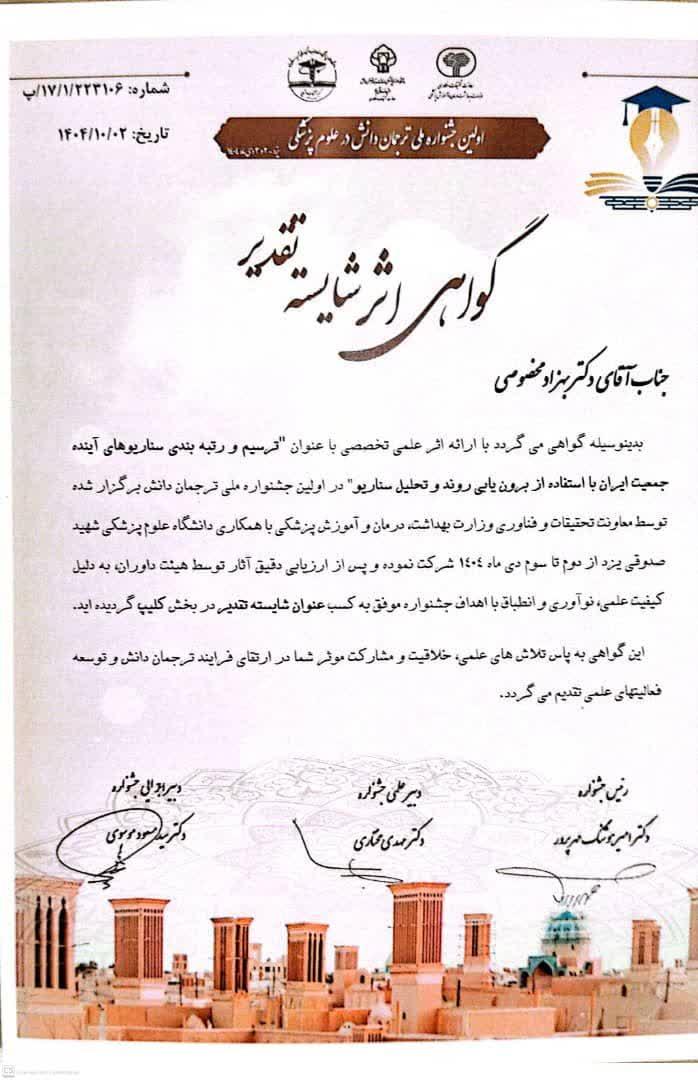 شماره: ۱۷/۱/۲۲۳۱۰۶/پ
تاریخ: ۱۴۰۴/۱۰/۰۲
اولین جشنواره ملی ترجمان دانش در علوم پزشکی
گواهی اثر شایسته تقدیر
جناب آقای دکتر بهزاد مخصوصی
بدینوسیله گواهی می گردد با ارائه اثر علمی تخصصی با عنوان "ترسیم و رتبه بندی سناریوهای آینده
جمعیت ایران با استفاده از برون یابی روند و تحلیل سناریو" در اولین جشنواره ملی ترجمان دانش برگزار شده
توسط معاونت تحقیقات و فناوری وزارت بهداشت، درمان و آموزش پزشکی با همکاری دانشگاه علوم پزشکی شهید
صدوقی یزد از دوم تا سوم دی ماه ۱۴۰۴ شرکت نموده و پس از ارزیابی دقیق آثار توسط هیئت داوران، به دلیل
کیفیت علمی، نوآوری و انطباق با اهداف جشنواره موفق به کسب عنوان شایسته تقدیر در بخش کلیپ گردیده اید.
این گواهی به پاس تلاش های علمی، خلاقیت و مشارکت موثر شما در ارتقای فرایند ترجمان دانش و توسعه
فعالیتهای علمی تقدیم می گردد.
رئیس جشنواره
دکتر امیر هوشنگ مهرپرور
دبیر علمی جشنواره
دکتر مهدی مختاری
دبیر اجرایی جشنواره
دکتر سید مسعود موسوی